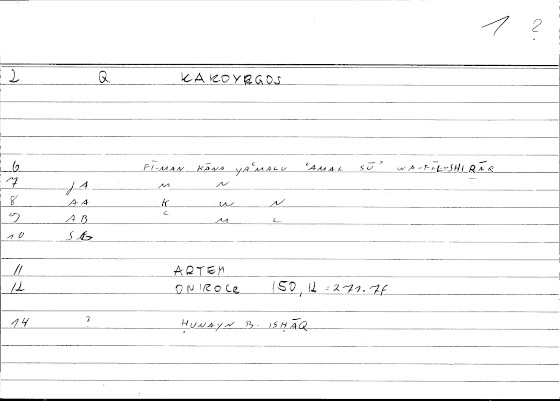 1 ?
2 Q KAKOYRGOS
6 FĪ-MAN KĀNA YAʿMALU ʿAMAL SŪʾ WA-FĪ-L-SHIRĀR
7 JA M N
8 AA K W N
9 AB C M L
10 SG
11 ARTEM
12 ONIROCR 150, 12 = 271.7f
14 ? ḤUNAYN B. ISḤĀQ